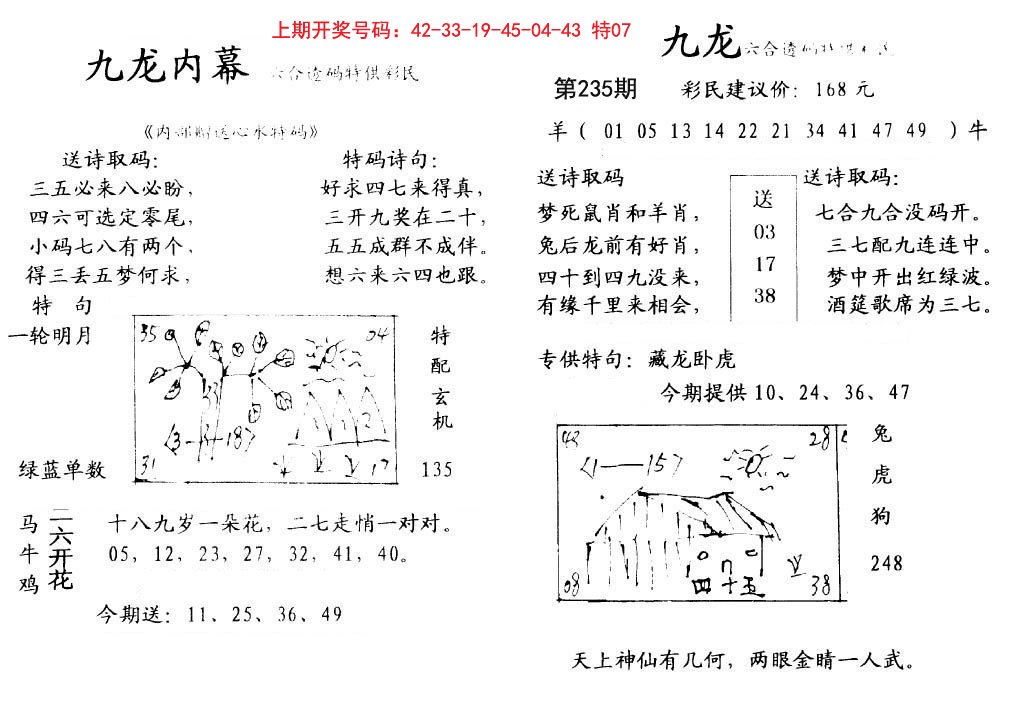 上期开奖号码：42-33-19-45-04-43 特07
九龙内幕 六合透码特供彩民
《内部赠送心水特码》
送诗取码：
三五必来八必盼，
四六可选定零尾，
小码七八有两个，
得三丢五梦何求，
特码诗句：
好求四七来得真，
三开九奖在二十，
五五成群不成伴。
想六来六四也跟。
特 句
一轮明月
绿蓝单数
35
04
33
31
17
特配玄机
135
马牛鸡
二六开花
十八九岁一朵花，二七走悄一对对。
05，12，23，27，32，41，40。
今期送：11、25、36、49
九龙 六合透码特供
第235期 彩民建议价：168 元
羊（ 01 05 13 14 22 21 34 41 47 49 ）牛
送诗取码
梦死鼠肖和羊肖，
兔后龙前有好肖，
四十到四九没来，
有缘千里来相会，
送
03
17
38
送诗取码：
七合九合没码开。
三七配九连连中。
梦中开出红绿波。
酒筵歌席为三七。
专供特句：藏龙卧虎
今期提供 10、24、36、47
28
08
四十五
38
兔
虎
狗
248
天上神仙有几何，两眼金睛一人武。